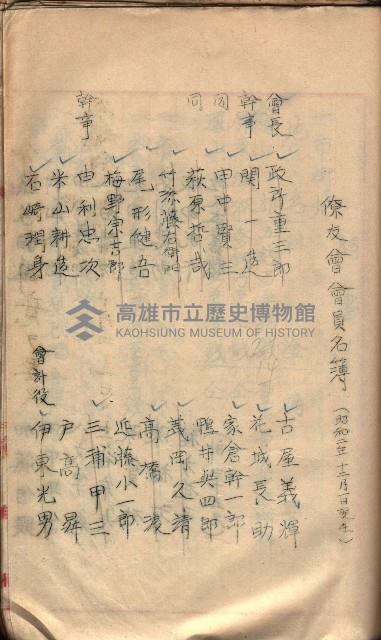 僚友會會員名簿
會長 政所重三郎
幹事 関一造
同 田中賢三
同 萩東哲哉
竹添藤右衛門
尾形健吾
梅野宗吉郎
幹事 由利忠次
米山耕造
石崎潤身
古屋義輝
花城長助
家倉幹一郎
鴨井與四郎
茂岡久清
高橋
近藤小一郎
三浦甲三
戸髙昇
會計役 伊東光男
高雄市立歷史博物館
KAOHSIUNG MUSEUM OF HISTORY